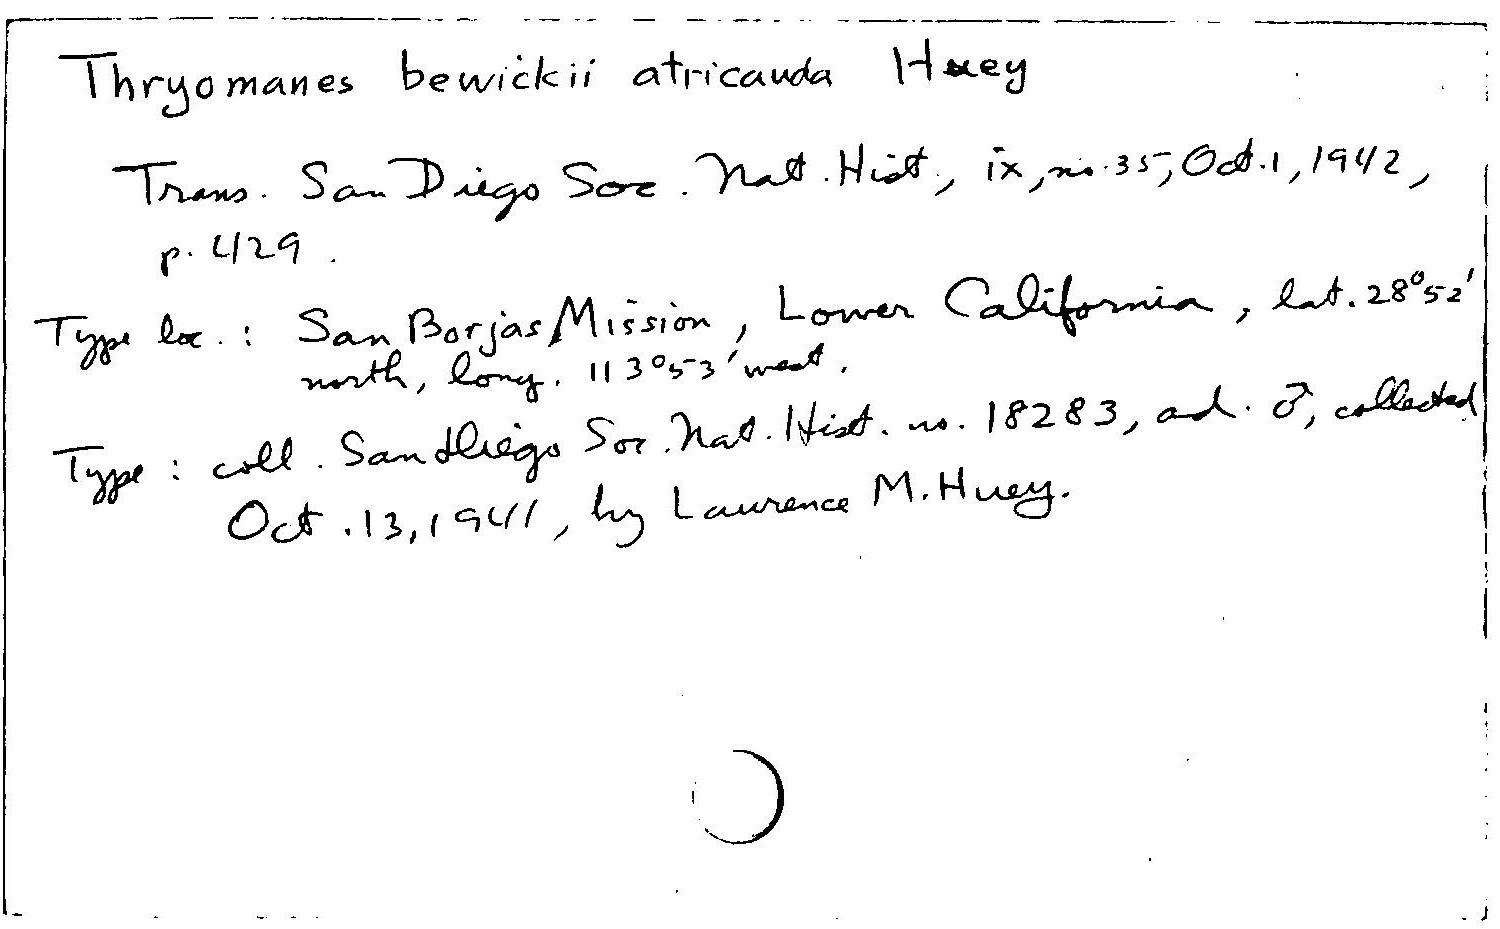 Thryomanes bewickii atricauda Huey
Trans. San Diego Soc. Nat. Hist., ix, no. 35, Oct. 1, 1942,
p. 429.
Type loc.: San Borjas Mission, Lower California, lat. 28°52'
north, long. 113°53' west.
Type: coll. San Diego Soc. Nat. Hist. no. 18283, ad. ♂, collected
Oct. 13, 1941, by Laurence M. Huey.